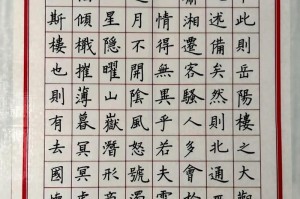 此則岳陽樓之大觀
述備矣然則北通巫
湘遷客騷人多會於
情得無異乎若夫霪
月不開陰風怒號濁
星隱曜山嶽潛形商
傾檝摧薄暮冥冥虎
斯樓也則有去國懷